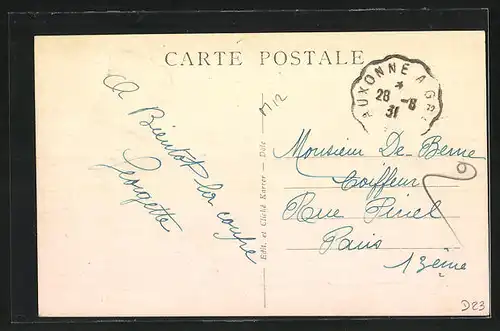 CARTE POSTALE
M12
AUXONNE A GR
28 -8
31
A Bientôt la coupe
Georgette
Edit. et Cliché Karrer - Dole
Monsieur De Berne
Coiffeur
Rue Pinel
Paris
13ème
D23